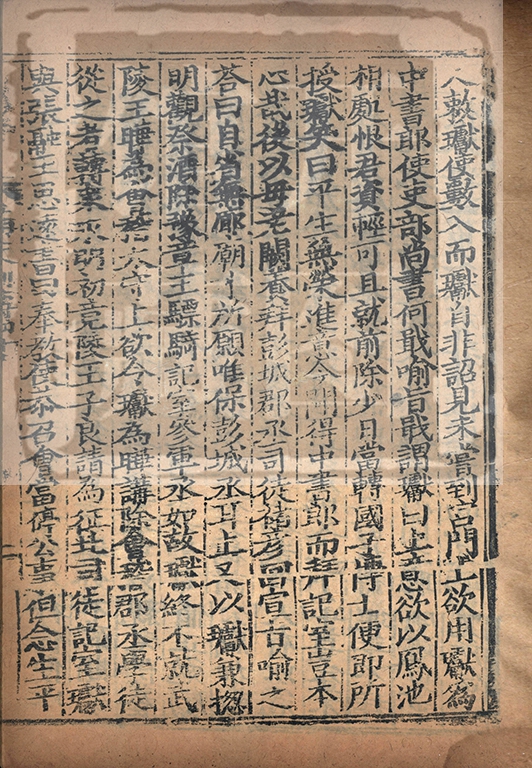 又敕瓛使數入而瓛自非詔見未嘗到宮門上欲用瓛爲
中書郎使吏部尚書何戢喻旨戢謂瓛曰上意欲以鳳池
相處恨君資輕可且就前除少日當轉國子博士便即所
授瓛笑曰平生無榮進意今聞得中書郎而拜記室豈本
心哉後以母老闕養拜彭城郡丞司徒褚彦回宣旨喻之
荅曰自省無廊廟才所願唯保彭城丞耳上又以瓛兼揔
明觀祭酒除豫章王驃騎記室參軍丞如故瓛終不就武
陵王曄為會稽太守上欲令瓛為曄講除會稽郡丞學徒
從之者轉衆永明初竟陵王子良請為征北司徒記室瓛
與張融王思遠書曰奉教使恭召會當停公事但念生平